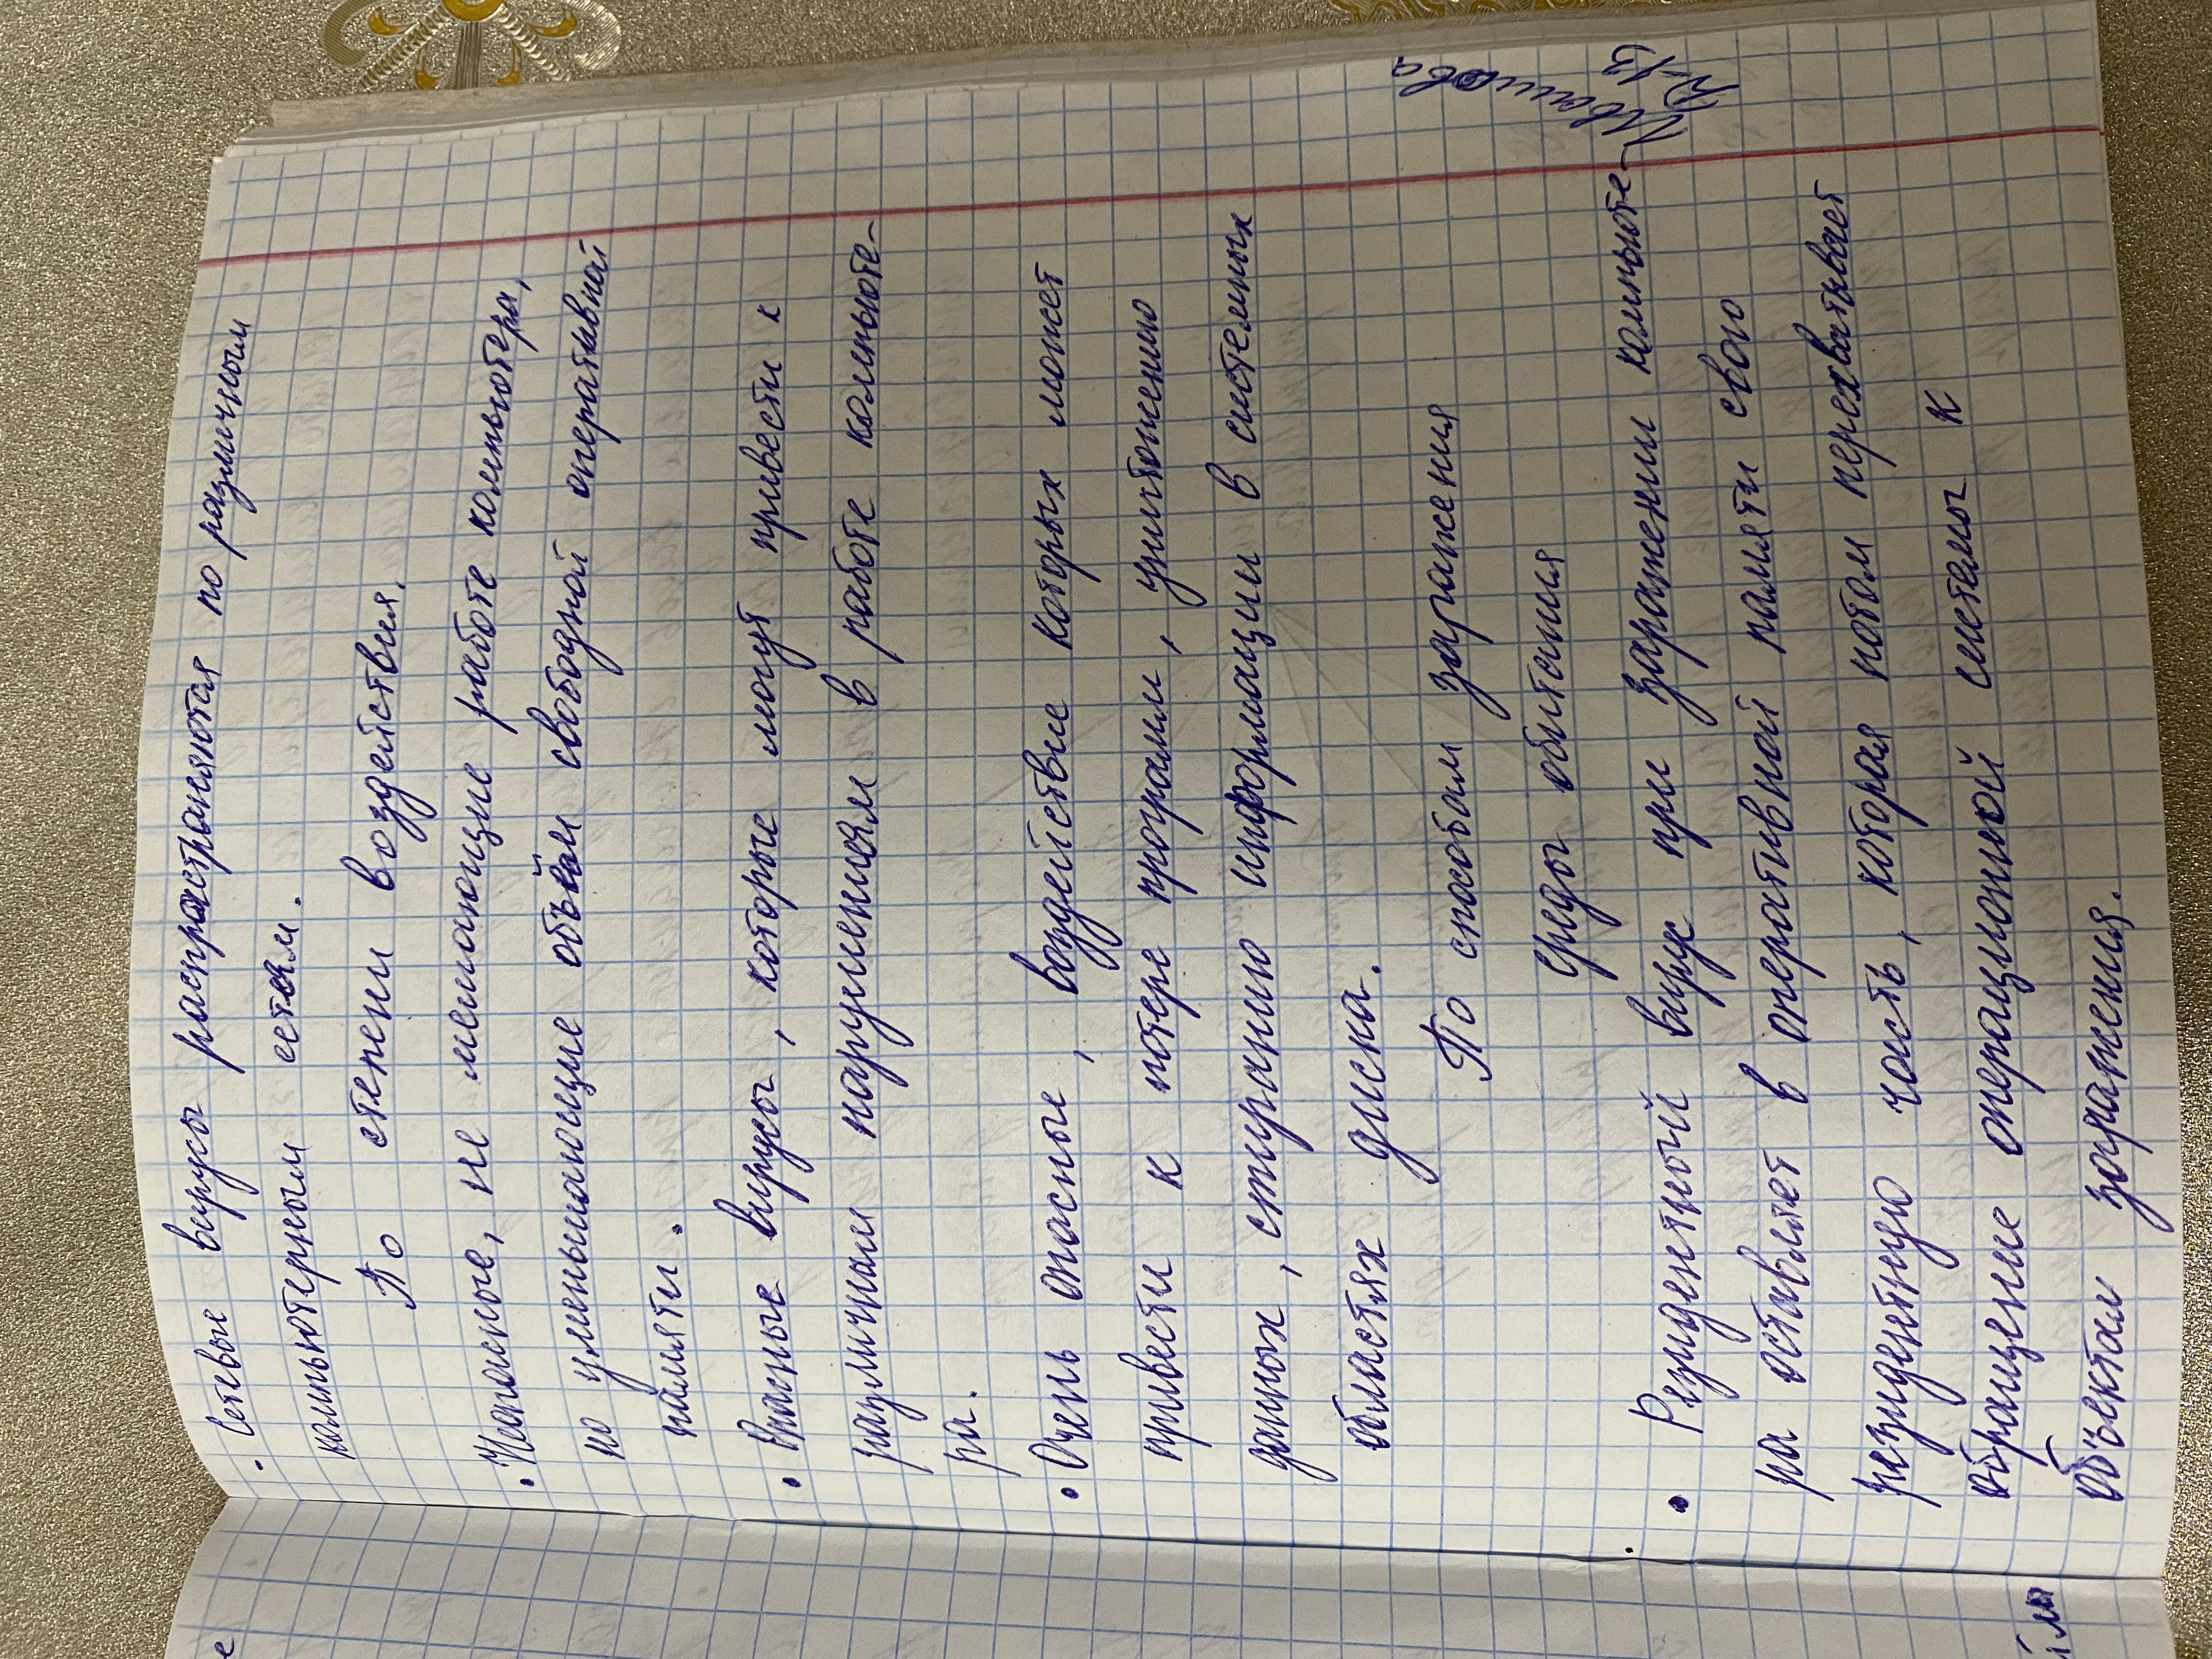 • Сетевые вирусы распространяются по различным
компьютерным сетям.
По степени воздействия.
• Неопасные, не мешающие работе компьютера,
но уменьшающие объём свободной оперативной
памяти.
• Опасные вирусы, которые могут привести к
различным нарушениям в работе компьюте-
ра.
• Очень опасные, воздействие которых может
привести к потере программ, уничтожению
данных, стиранию информации в системных
областях диска.
По способам заражения
среды обитания
• Резидентный вирус при заражении компьюте-
ра оставляет в оперативной памяти свою
резидентную часть, которая потом перехватывает
обращение операционной системы к
объектам заражения.